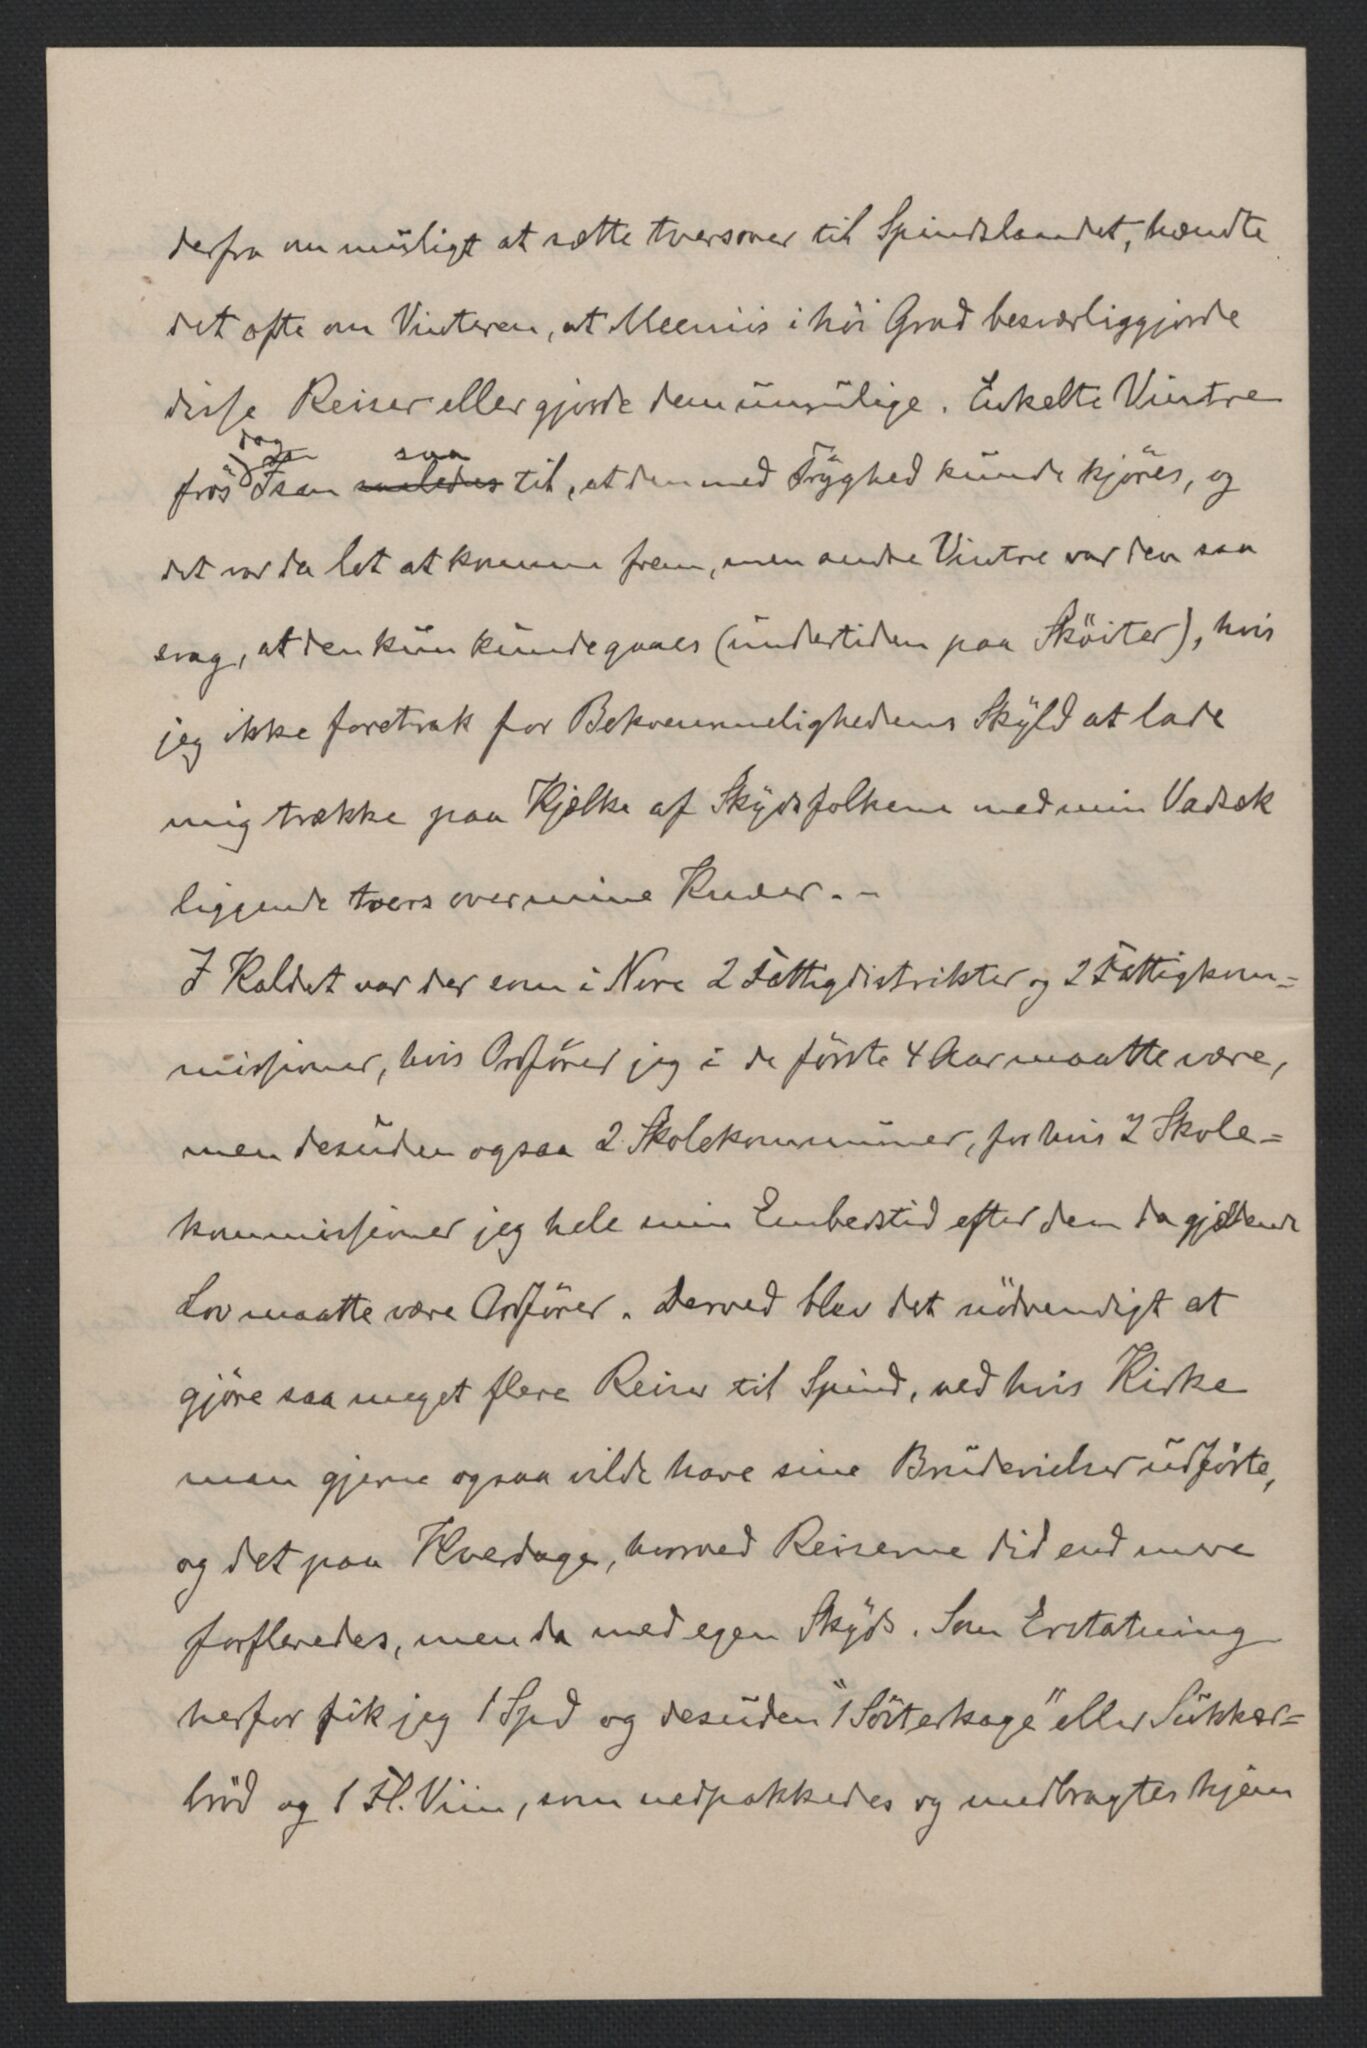 derfra om muligt at sætte tversover til Spindslandet, hændte
det ofte om Vinteren, at Meeniis i höi Grad besværliggjorde
disse Reiser eller gjorde dem umulige. Enkelte Vintre
dog saa
frös Isen saaledes til, at den med Tryghed kunde kjöres, og
det var da let at komme frem, men andre Vintre var den saa
svag, at den kun kunde gaaes (undertiden paa Sköiter), hvis
jeg ikke foretrak for Bekvemmelighedens Skyld at lade
mig trække paa Kjelke af Skydsfolkene med min Vadsæk
liggende tvers over mine Knæer. -
I Kaldet var der som i Nore 2 Fattigdistrikter og 2 Fattigkom-
missioner, hvis Ordförer jeg i de förste 4 Aar maatte være,
men desuden ogsaa 2 Skolekommuner, for hvis 2 Skole-
kommissioner jeg hele min Embedstid efter den da gjældende
Lov maatte være Ordförer. Derved blev det nödvendigt at
gjöre saa meget flere Reiser til Spind, ved hvis Kirke
man gjerne ogsaa vilde have sine Brudevielser udförte,
og det paa Hverdage, hvorved Reiserne did end mere
forfleredes, men da med egen Skyds. Som Erstatning
herfor fik jeg 1 Spd og desuden "1 Sörterkage" eller Sukker-
bröd og 1 Fl. Viin, som nedpakkedes og medbragtes hjem